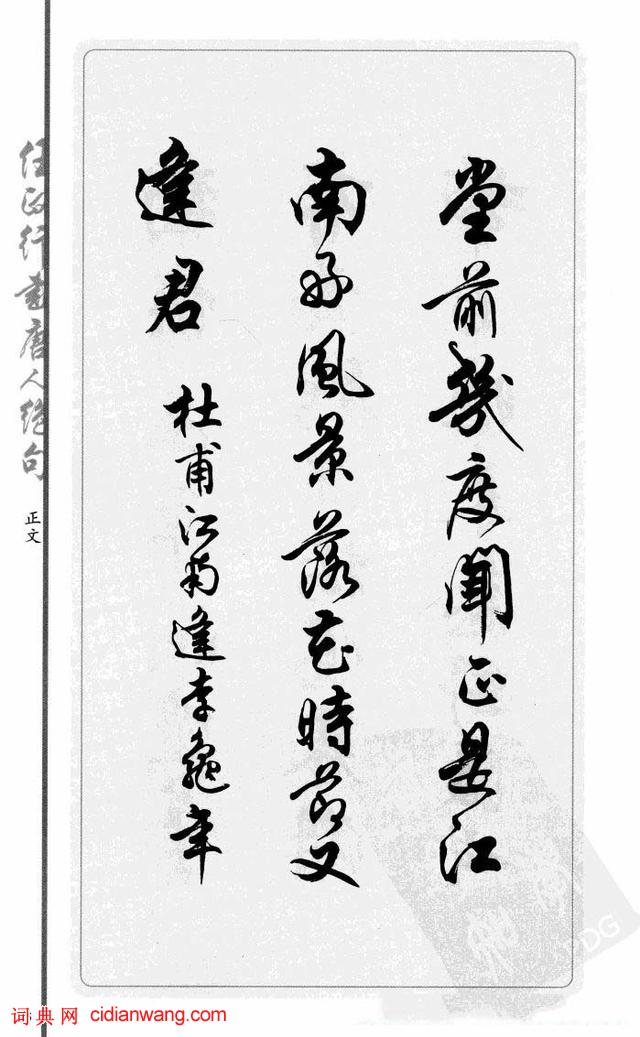 堂前幾度聞正是江
南好風景落花時節又
逢君 杜甫江南逢李龜年
任政行書唐人绝句
正文
词典网 cidianwang.com